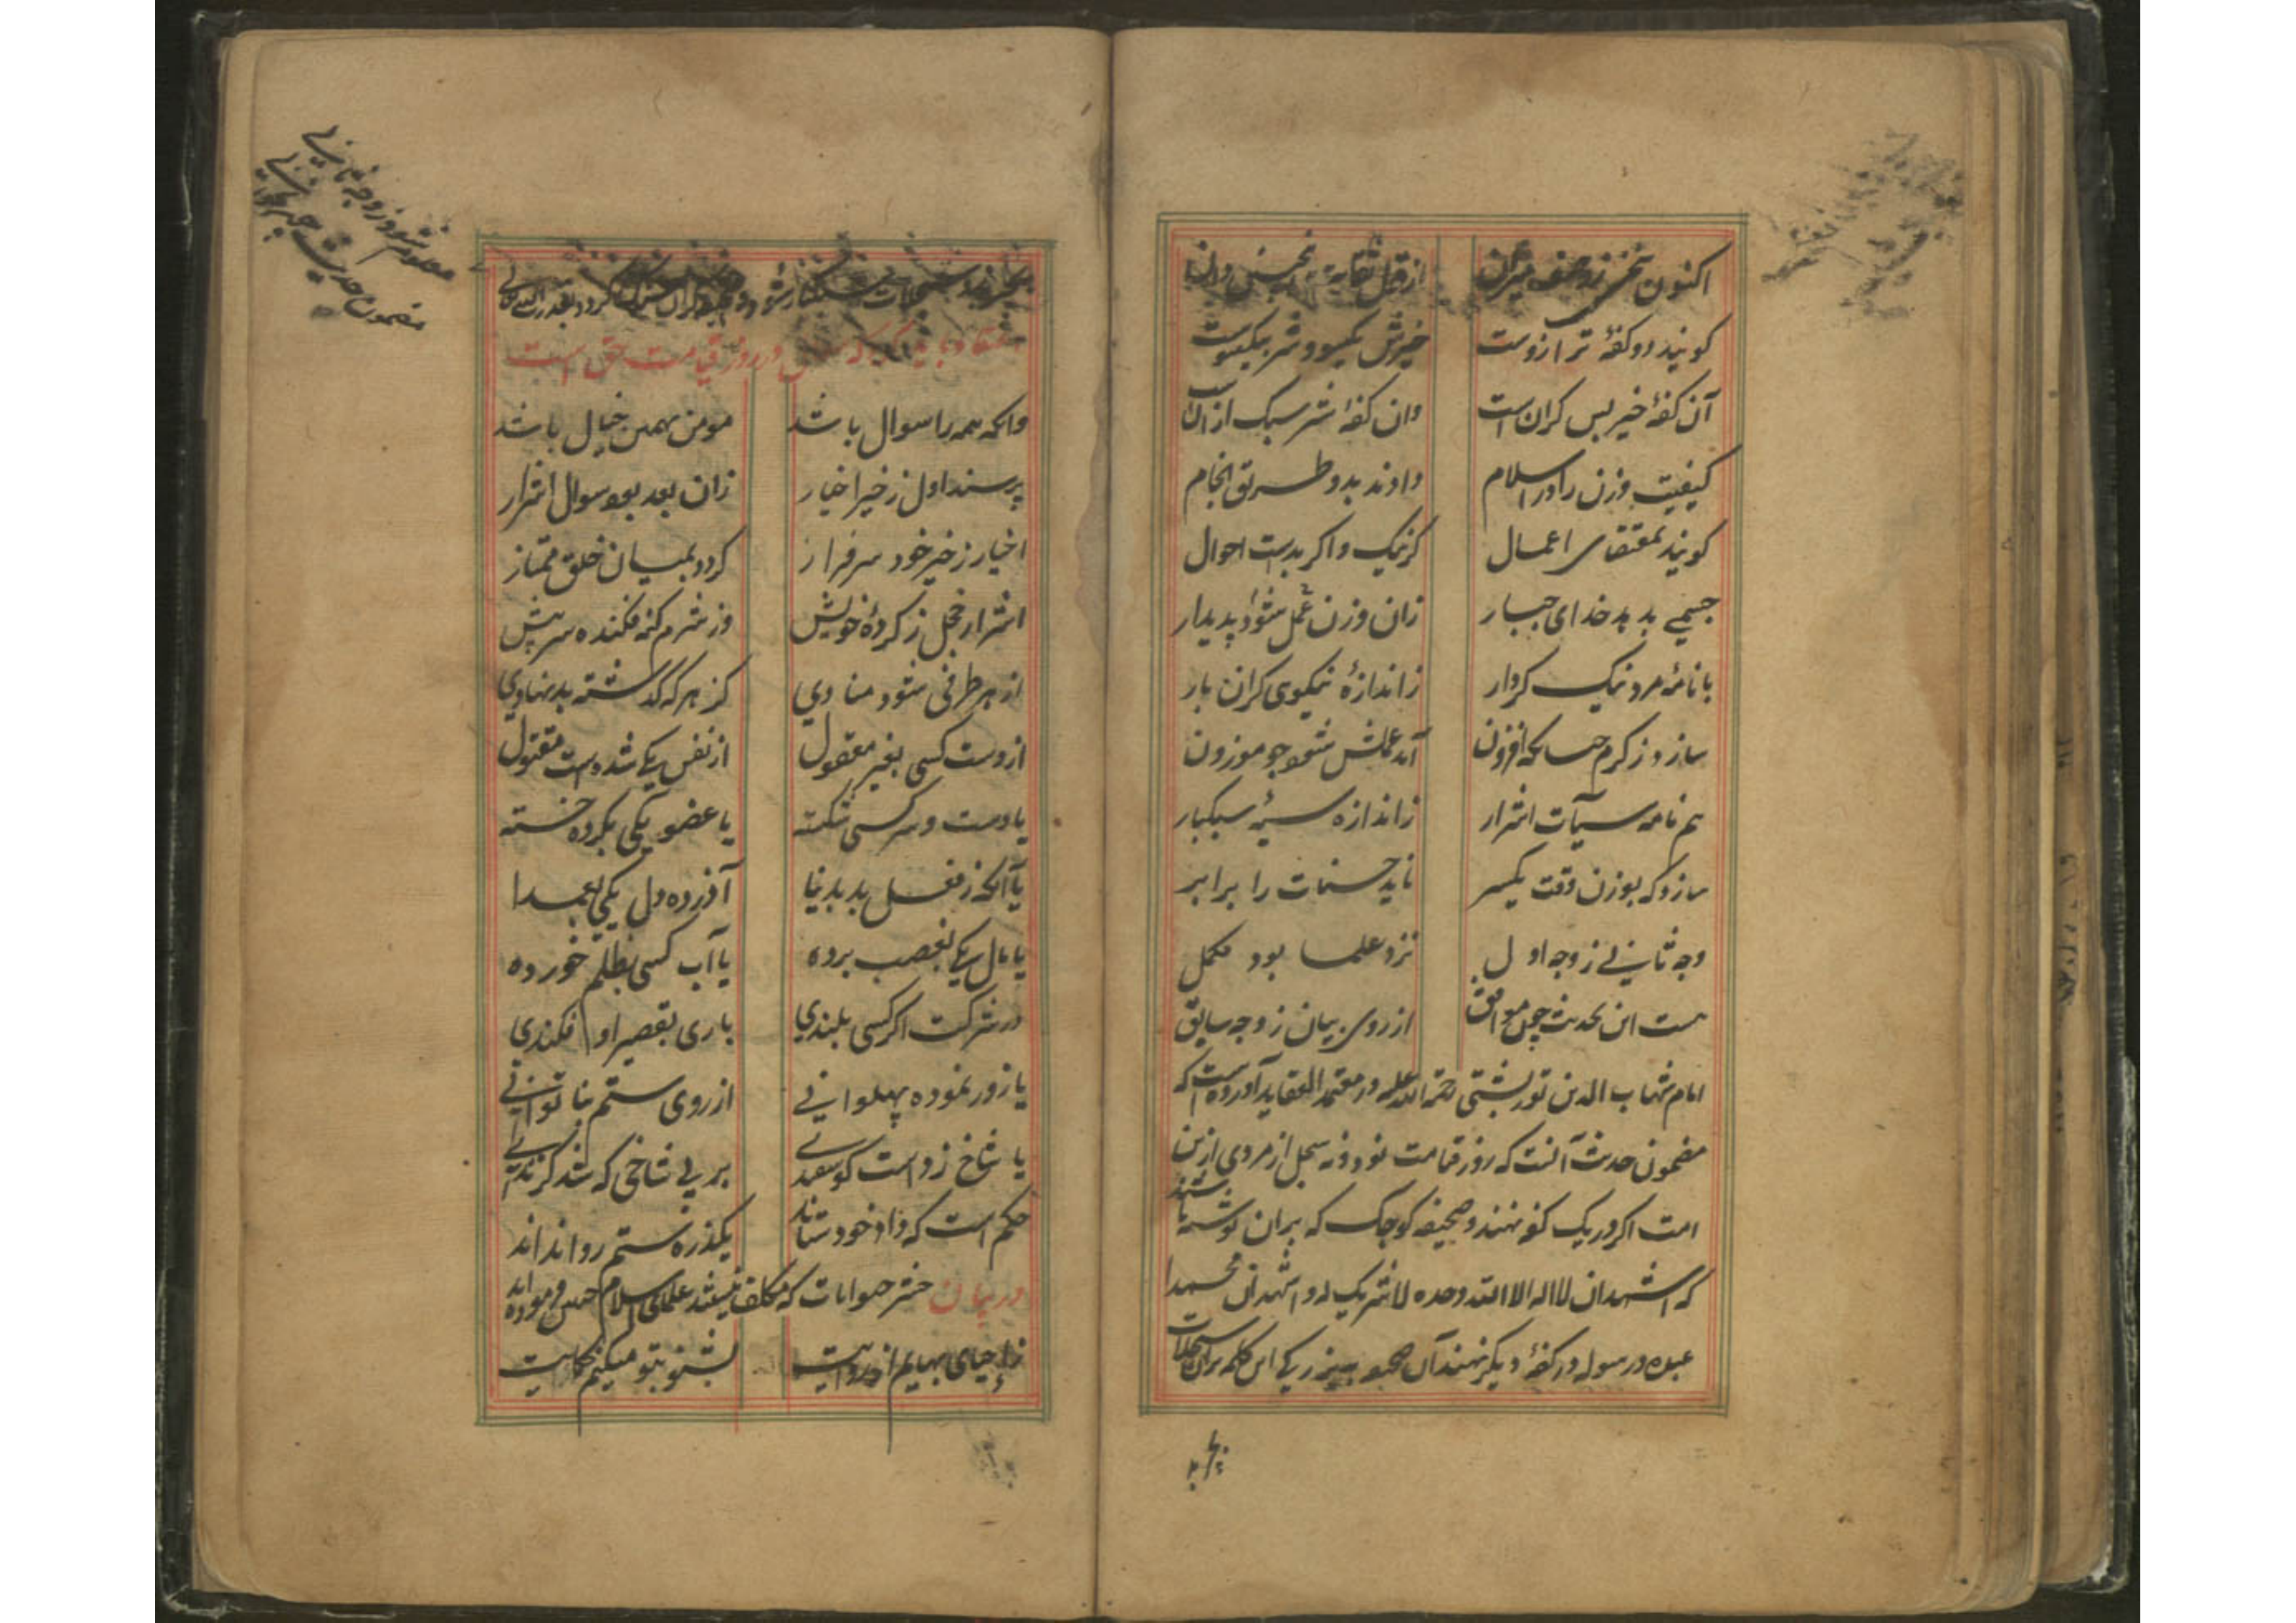 اکنون سخن ز وصف میزان
از قول ثقات
کویند دو کفهٔ ترازوست
خیرش یکسو و شر بیکسوست
آن کفهٔ خیر بس کران است
وان کفهٔ شر سبک ازان است
کیفیت وزن را در اسلام
دادند بدو طریق انجام
کویند بمقتضای اعمال
کر نیک و اکر بدست احوال
جسمی بدهد خدای جبار
زان وزن عمل شود پدیدار
با نامهٔ مرد نیک کردار
ز اندازهٔ نیکوی کران بار
سازد ز کرم افزون
آید عملش شود چو موزون
هم نامه سیآت اشرار
ز اندازه سیهٔ سبکبار
سازد که بوزن وقت یکسر
ناید حسنات را برابر
وجه ثانی ز وجه اول
نزد علما بود مکمل
هست این بحدیث چون موافق
از روی بیان ز وجه سابق
امام شهاب الدین تورپشتی رحمة الله علیه در معتمد العقاید آورده است که
مضمون حدیث آنست که روز قیامت نود و نه سجل از مردی ازین
امت اکر در یک کفه نهند و صحیفه کوچک که بران نوشته باشند
که اشهد ان لا اله الا الله وحده لا شریک له و اشهد ان محمدا
عبده و رسوله در کفهٔ دیکر نهند آن صحیفه بزرکی این کلمه بران سجلات
بچربد
مضمون حدیث
در روز قیامت حق است
وانکه همه را سوال باشد
مومن بهمین خیال باشد
پرسند اول ز خیر اخیار
زان بعد بود سوال اشرار
اخیار ز خیر خود سرفراز
کردد بمیان خلق ممتاز
اشرار خجل ز کردهٔ خویش
وز شرم کنه فکنده سر پیش
از هر طرفی شود منادی
کز هر که کذشته بدنهادی
از دست کسی بغیر معقول
از نفس یکی شدست مقتول
یا دست و سر کسی شکسته
یا عضو یکی بکرده خسته
یا آنکه ز فعل بد بدنیا
آزرده دل یکی بعمدا
یا مال یکی بغصب برده
یا آب کسی بظلم خورده
در شرکت اکر کسی بلندی
باری بقصیر او فکندی
یا زور نموده پهلوانی
از روی ستم بناتوانی
یا شاخ زدست کوسفندی
بر بی شاخی که شد کزندی
حکم است که داد خود ستانند
یکذره ستم روا ندانند
در بیان حشر حیوانات که مکلف نیستند علمای اسلام چنین فرموده اند
ز احیای بهایم از روایت
بشنو بتو میکنم حکایت